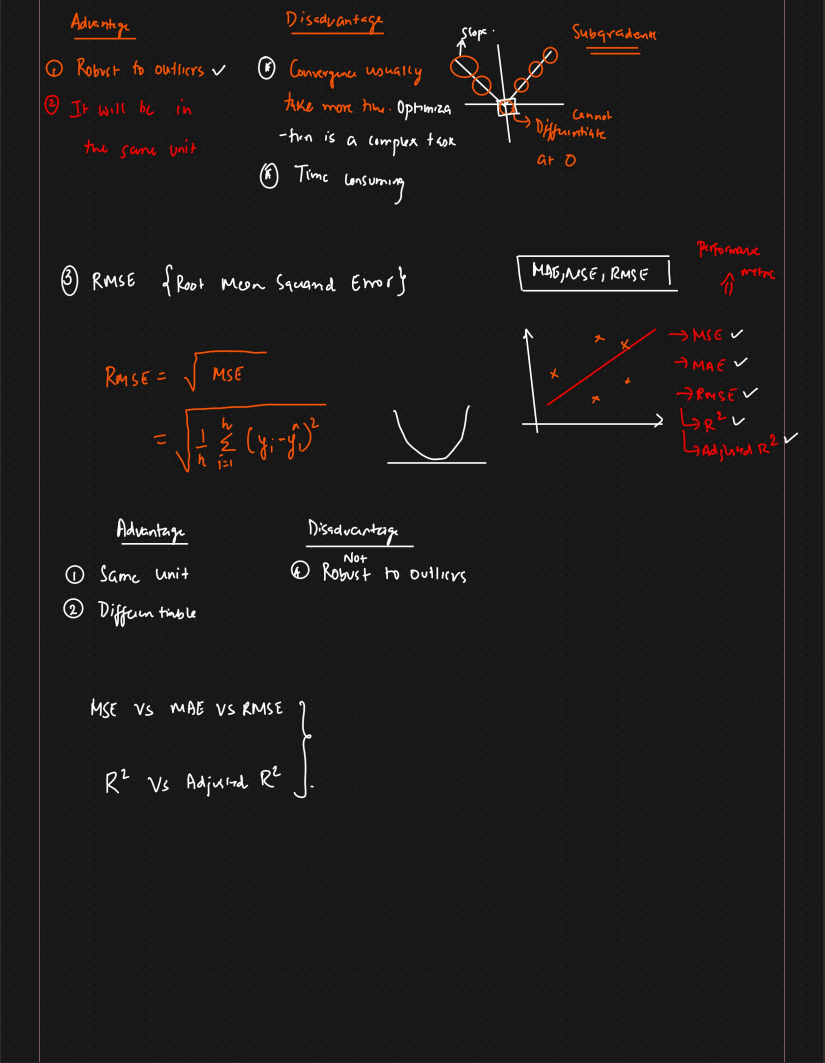 Advantage
① Robust to outliers ✓
② It will be in
the same unit
Disadvantage
Convergence usually
take more time. Optimiza
-tion is a complex task
Time consuming
Slope.
Subgradients
Cannot
Differentiate
at 0
③ RMSE {Root Mean Squared Error}
MAE, MSE, RMSE
Performance
metric
RMSE = √MSE
= √(1/n Σ i=1 n (yi - ŷi)²)
→ MSE ✓
→ MAE ✓
→ RMSE ✓
→ R² ✓
→ Adjusted R² ✓
Advantage
① Same unit
② Differentiable
Disadvantage
Not
① Robust to outliers
MSE vs MAE vs RMSE
R² Vs Adjusted R²